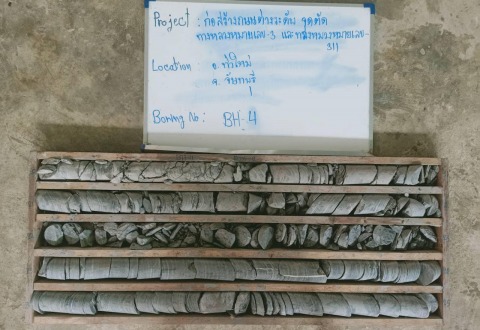 Project : ก่อสร้างถนนต่างระดับ จุดตัด
ทางหลวงหมายเลข-3 และทางหลวงหมายเลข-
311
Location อ. ท่าใหม่
จ. จันทบุรี
Boring No : BH-4